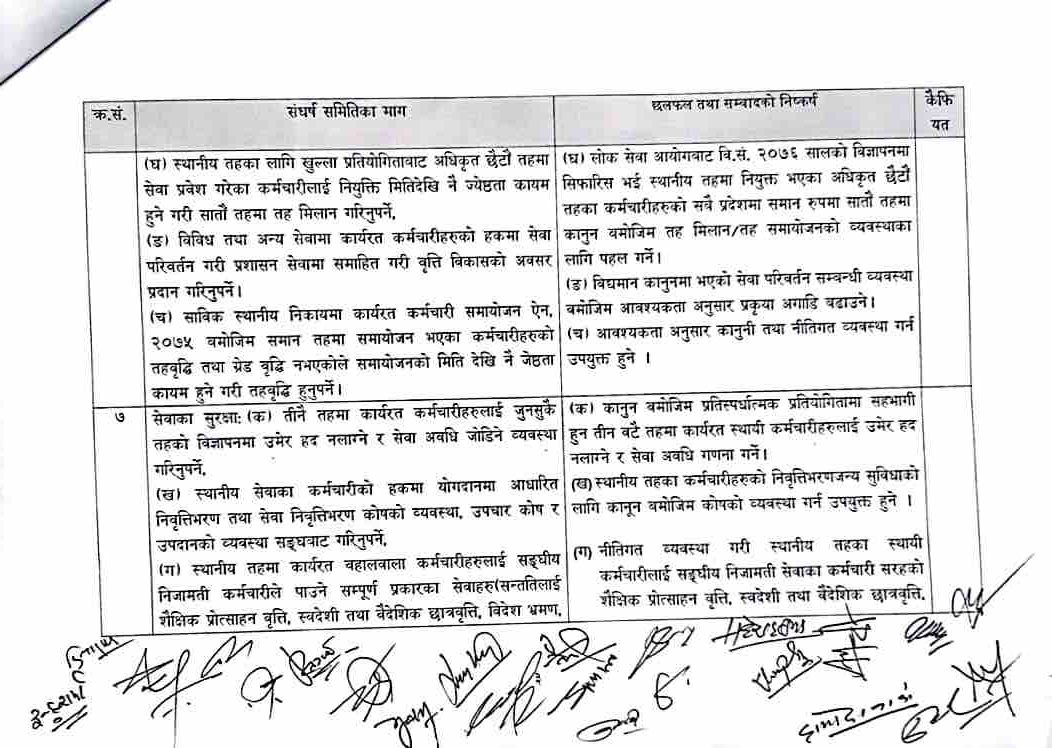 क्र.सं.
संघर्ष समितिका माग
छलफल तथा सम्वादको निष्कर्ष
कैफि
यत
(घ) स्थानीय तहका लागि खुल्ला प्रतियोगिताबाट अधिकृत छैटौं तहमा
सेवा प्रवेश गरेका कर्मचारीलाई नियुक्ति मितिदेखि नै ज्येष्ठता कायम
हुने गरी सातौं तहमा तह मिलान गरिनुपर्ने,
(ङ) विविध तथा अन्य सेवामा कार्यरत कर्मचारीहरुको हकमा सेवा
परिवर्तन गरी प्रशासन सेवामा समाहित गरी वृत्ति विकासको अवसर
प्रदान गरिनुपर्ने।
(च) साविक स्थानीय निकायमा कार्यरत कर्मचारी समायोजन ऐन,
२०७५ बमोजिम समान तहमा समायोजन भएका कर्मचारीहरुको
तहवृद्धि तथा ग्रेड वृद्धि नभएकोले समायोजनको मिति देखि नै जेष्ठता
कायम हुने गरी तहवृद्धि हुनुपर्ने।
(घ) लोक सेवा आयोगबाट वि.सं. २०७६ सालको विज्ञापनमा
सिफारिस भई स्थानीय तहमा नियुक्त भएका अधिकृत छैटौं
तहका कर्मचारीहरुको सबै प्रदेशमा समान रुपमा सातौं तहमा
कानुन बमोजिम तह मिलान/तह समायोजनको व्यवस्थाका
लागि पहल गर्ने।
(ङ) विद्यमान कानुनमा भएको सेवा परिवर्तन सम्बन्धी व्यवस्था
बमोजिम आवश्यकता अनुसार प्रकृया अगाडि बढाउने।
(च) आवश्यकता अनुसार कानुनी तथा नीतिगत व्यवस्था गर्न
उपयुक्त हुने ।
७
सेवाका सुरक्षा: (क) तीनै तहमा कार्यरत कर्मचारीहरुलाई जुनसुकै
तहको विज्ञापनमा उमेर हद नलाग्ने र सेवा अवधि जोडिने व्यवस्था
गरिनुपर्ने,
(ख) स्थानीय सेवाका कर्मचारीको हकमा योगदानमा आधारित
निवृत्तिभरण तथा सेवा निवृत्तिभरण कोषको व्यवस्था, उपचार कोष र
उपदानको व्यवस्था सङ्घबाट गरिनुपर्ने,
(ग) स्थानीय तहमा कार्यरत बहालवाला कर्मचारीहरुलाई सङ्घीय
निजामती कर्मचारीले पाउने सम्पूर्ण प्रकारका सेवाहरु(सन्ततिलाई
शैक्षिक प्रोत्साहन वृत्ति, स्वदेशी तथा वैदेशिक छात्रवृत्ति, विदेश भ्रमण,
(क) कानुन बमोजिम प्रतिस्पर्धात्मक प्रतियोगितामा सहभागी
हुन तीन वटै तहमा कार्यरत स्थायी कर्मचारीहरुलाई उमेर हद
नलाग्ने र सेवा अवधि गणना गर्ने।
(ख) स्थानीय तहका कर्मचारीहरुको निवृत्तिभरणजन्य सुविधाको
लागि कानून बमोजिम कोषको व्यवस्था गर्न उपयुक्त हुने ।
(ग) नीतिगत व्यवस्था गरी स्थानीय तहका स्थायी
कर्मचारीलाई सङ्घीय निजामती सेवाका कर्मचारी सरहको
शैक्षिक प्रोत्साहन वृत्ति, स्वदेशी तथा वैदेशिक छात्रवृत्ति,